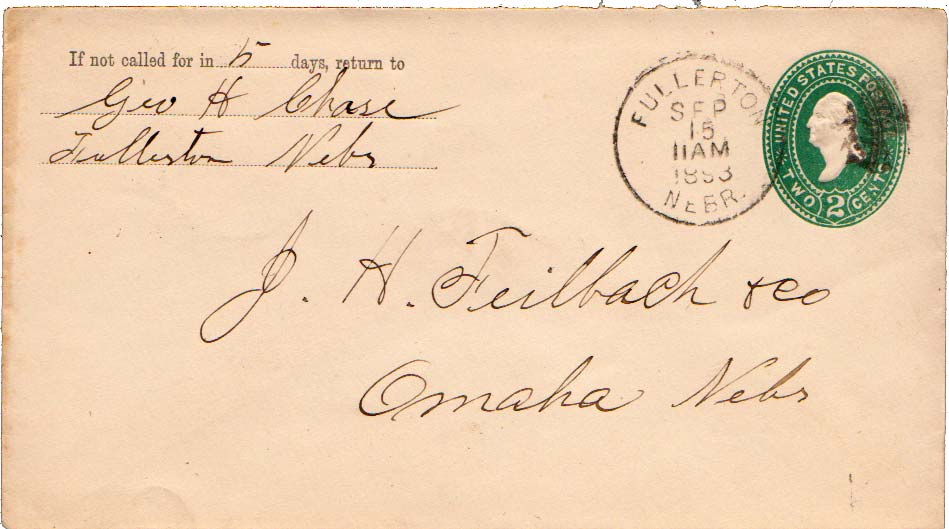 If not called for in 5 days, return to
Geo H Chase
Fullerton Nebr
FULLERTON
SEP
15
11AM
1893
NEBR.
UNITED STATES POSTAGE
TWO 2 CENTS
J. H. Feilbach & Co
Omaha Nebr